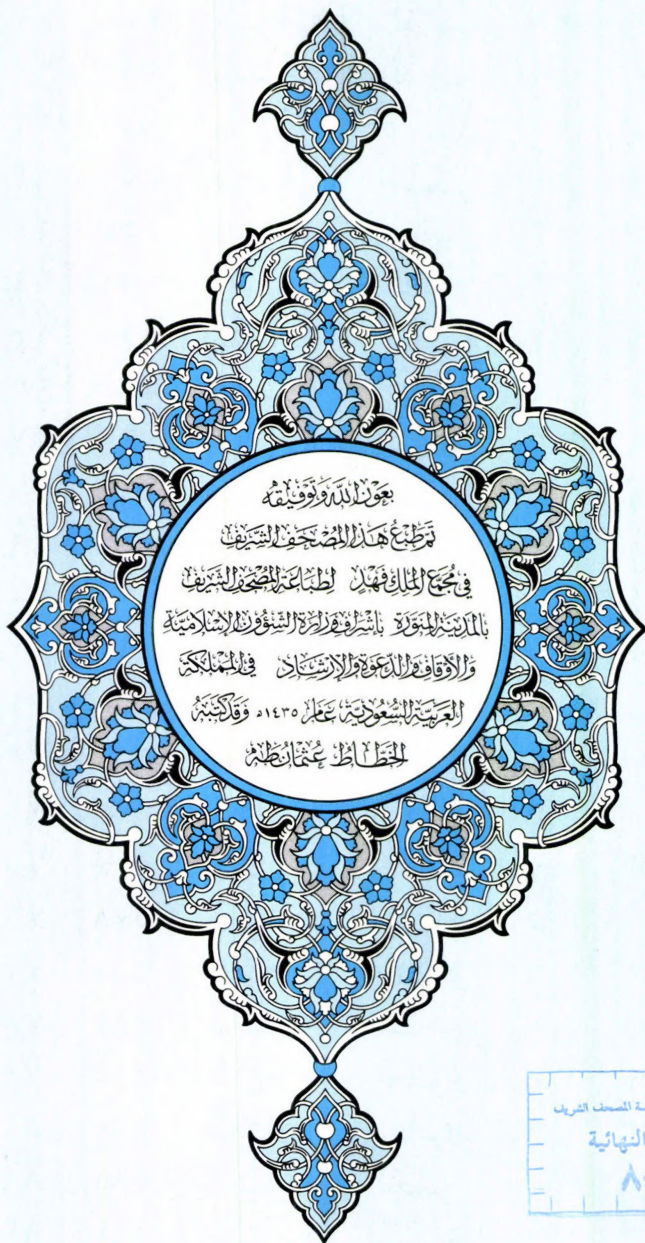 بعون الله وتوفيقه
تم طبع هذا المصحف الشريف
في مجمع الملك فهد لطباعة المصحف الشريف
بالمدينة المنورة بإشراف وزارة الشؤون الإسلامية
والأوقاف والدعوة والإرشاد في المملكة
العربية السعودية، عام ١٤٣٥ھ وقد كتبه
الخطاط عثمان طه
المصحف الشريف
النهائية